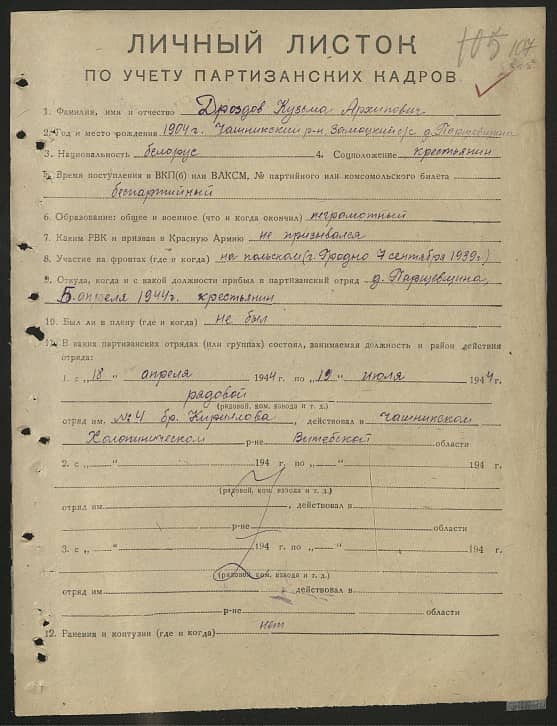 105 107
ЛИЧНЫЙ ЛИСТОК
ПО УЧЕТУ ПАРТИЗАНСКИХ КАДРОВ
1. Фамилия, имя и отчество Дроздов Кузьма Архипович
2. Год и место рождения 1904 г. Чашникский р-н Замоцкий с/с д. Паршевщина
3. Национальность белорус 4. Соцположение крестьянин
5. Время поступления в ВКП(б) или ВЛКСМ, № партийного или комсомольского билета
беспартийный
6. Образование: общее и военное (что и когда окончил) неграмотный
7. Каким РВК и призван в Красную Армию не призывался
8. Участие на фронтах (где и когда) на польском (г. Гродно 7 сентября 1939 г)
9. Откуда, когда и с какой должности прибыл в партизанский отряд д. Паршевщина,
5 апреля 1944 г. крестьянин
10. Был ли в плену (где и когда) не был
11. В каких партизанских отрядах (или группах) состоял, занимаемая должность и район действия
отряда:
1. с „18" апреля 1944 г. по „19" июля 1944 г.
рядовой
(рядовой, ком. взвода и т. д.)
отряд им. №4 бр. Кириллова, действовал в Чашникском
Холопиническом р-не Витебской области
2. с „ " 194 г. по „ " 194 г.
(рядовой, ком. взвода и т. д.)
отряд им. , действовал в
р-не области
3. с „ " 194 г. по „ " 194 г.
(рядовой, ком. взвода и т. д.)
отряд им , действовал в
р-не области
12. Ранения и контузии (где и когда) нет